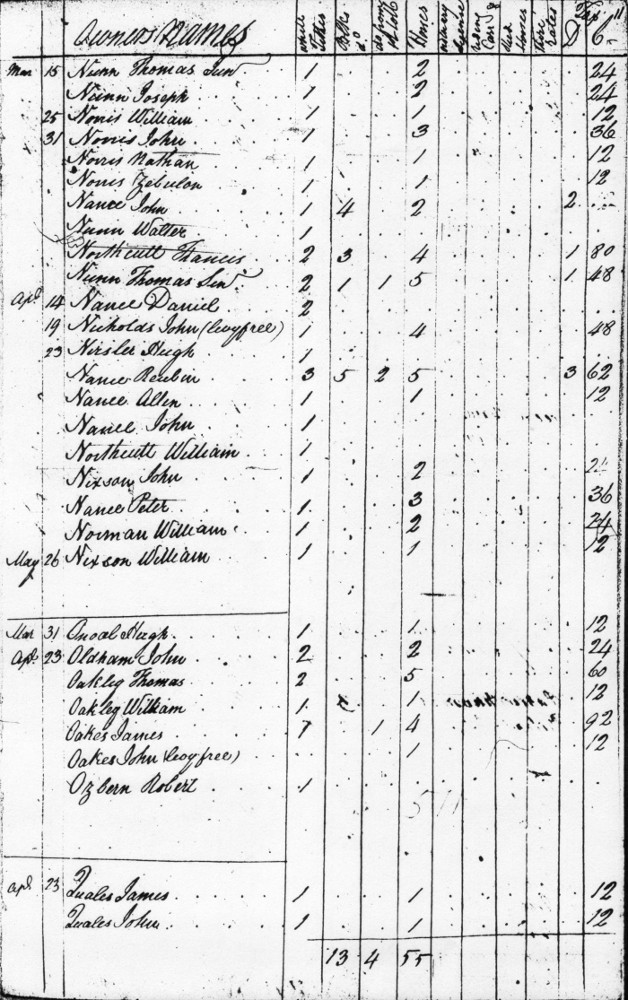 Owners Names white Blks Horses D Tax C
Mar 15 Nunn Thomas Jun 1 2 24
Nunn Joseph 1 2 24
25 Norris William 1 1 12
31 Norris John 1 3 36
Norris Nathan 1 1 12
Norris Zebulon 1 1 12
Nance John 1 4 2 2
Nunn Walter 1
Northcutt Francis 2 3 4 1 80
Nunn Thomas Senr 2 1 1 5 1 48
Apl 14 Nance Daniel 2
19 Nicholds John (levy free) 1 4 48
23 Nirsler Hugh 1
Nance Reuben 3 5 2 5 3 62
Nance Allen 1 1 12
Nance John 1
Northcutt William 1
Nixson John 1 2
Nance Peter 1 3 36
Norman William 1 2 24
May 26 Nixson William 1 1 12
Mar 31 Onoal Hugh 1 1 12
Apl 23 Oldham John 2 2 24
Oakley Thomas 2 5 60
Oakley William 1 1 12
Oakes James 1 1 4 92
Oakes John (levy free) 1 12
Ozbern Robert 1
Apl 23 Quales James 1 1 12
Quales John 1 1 12
13 4 55